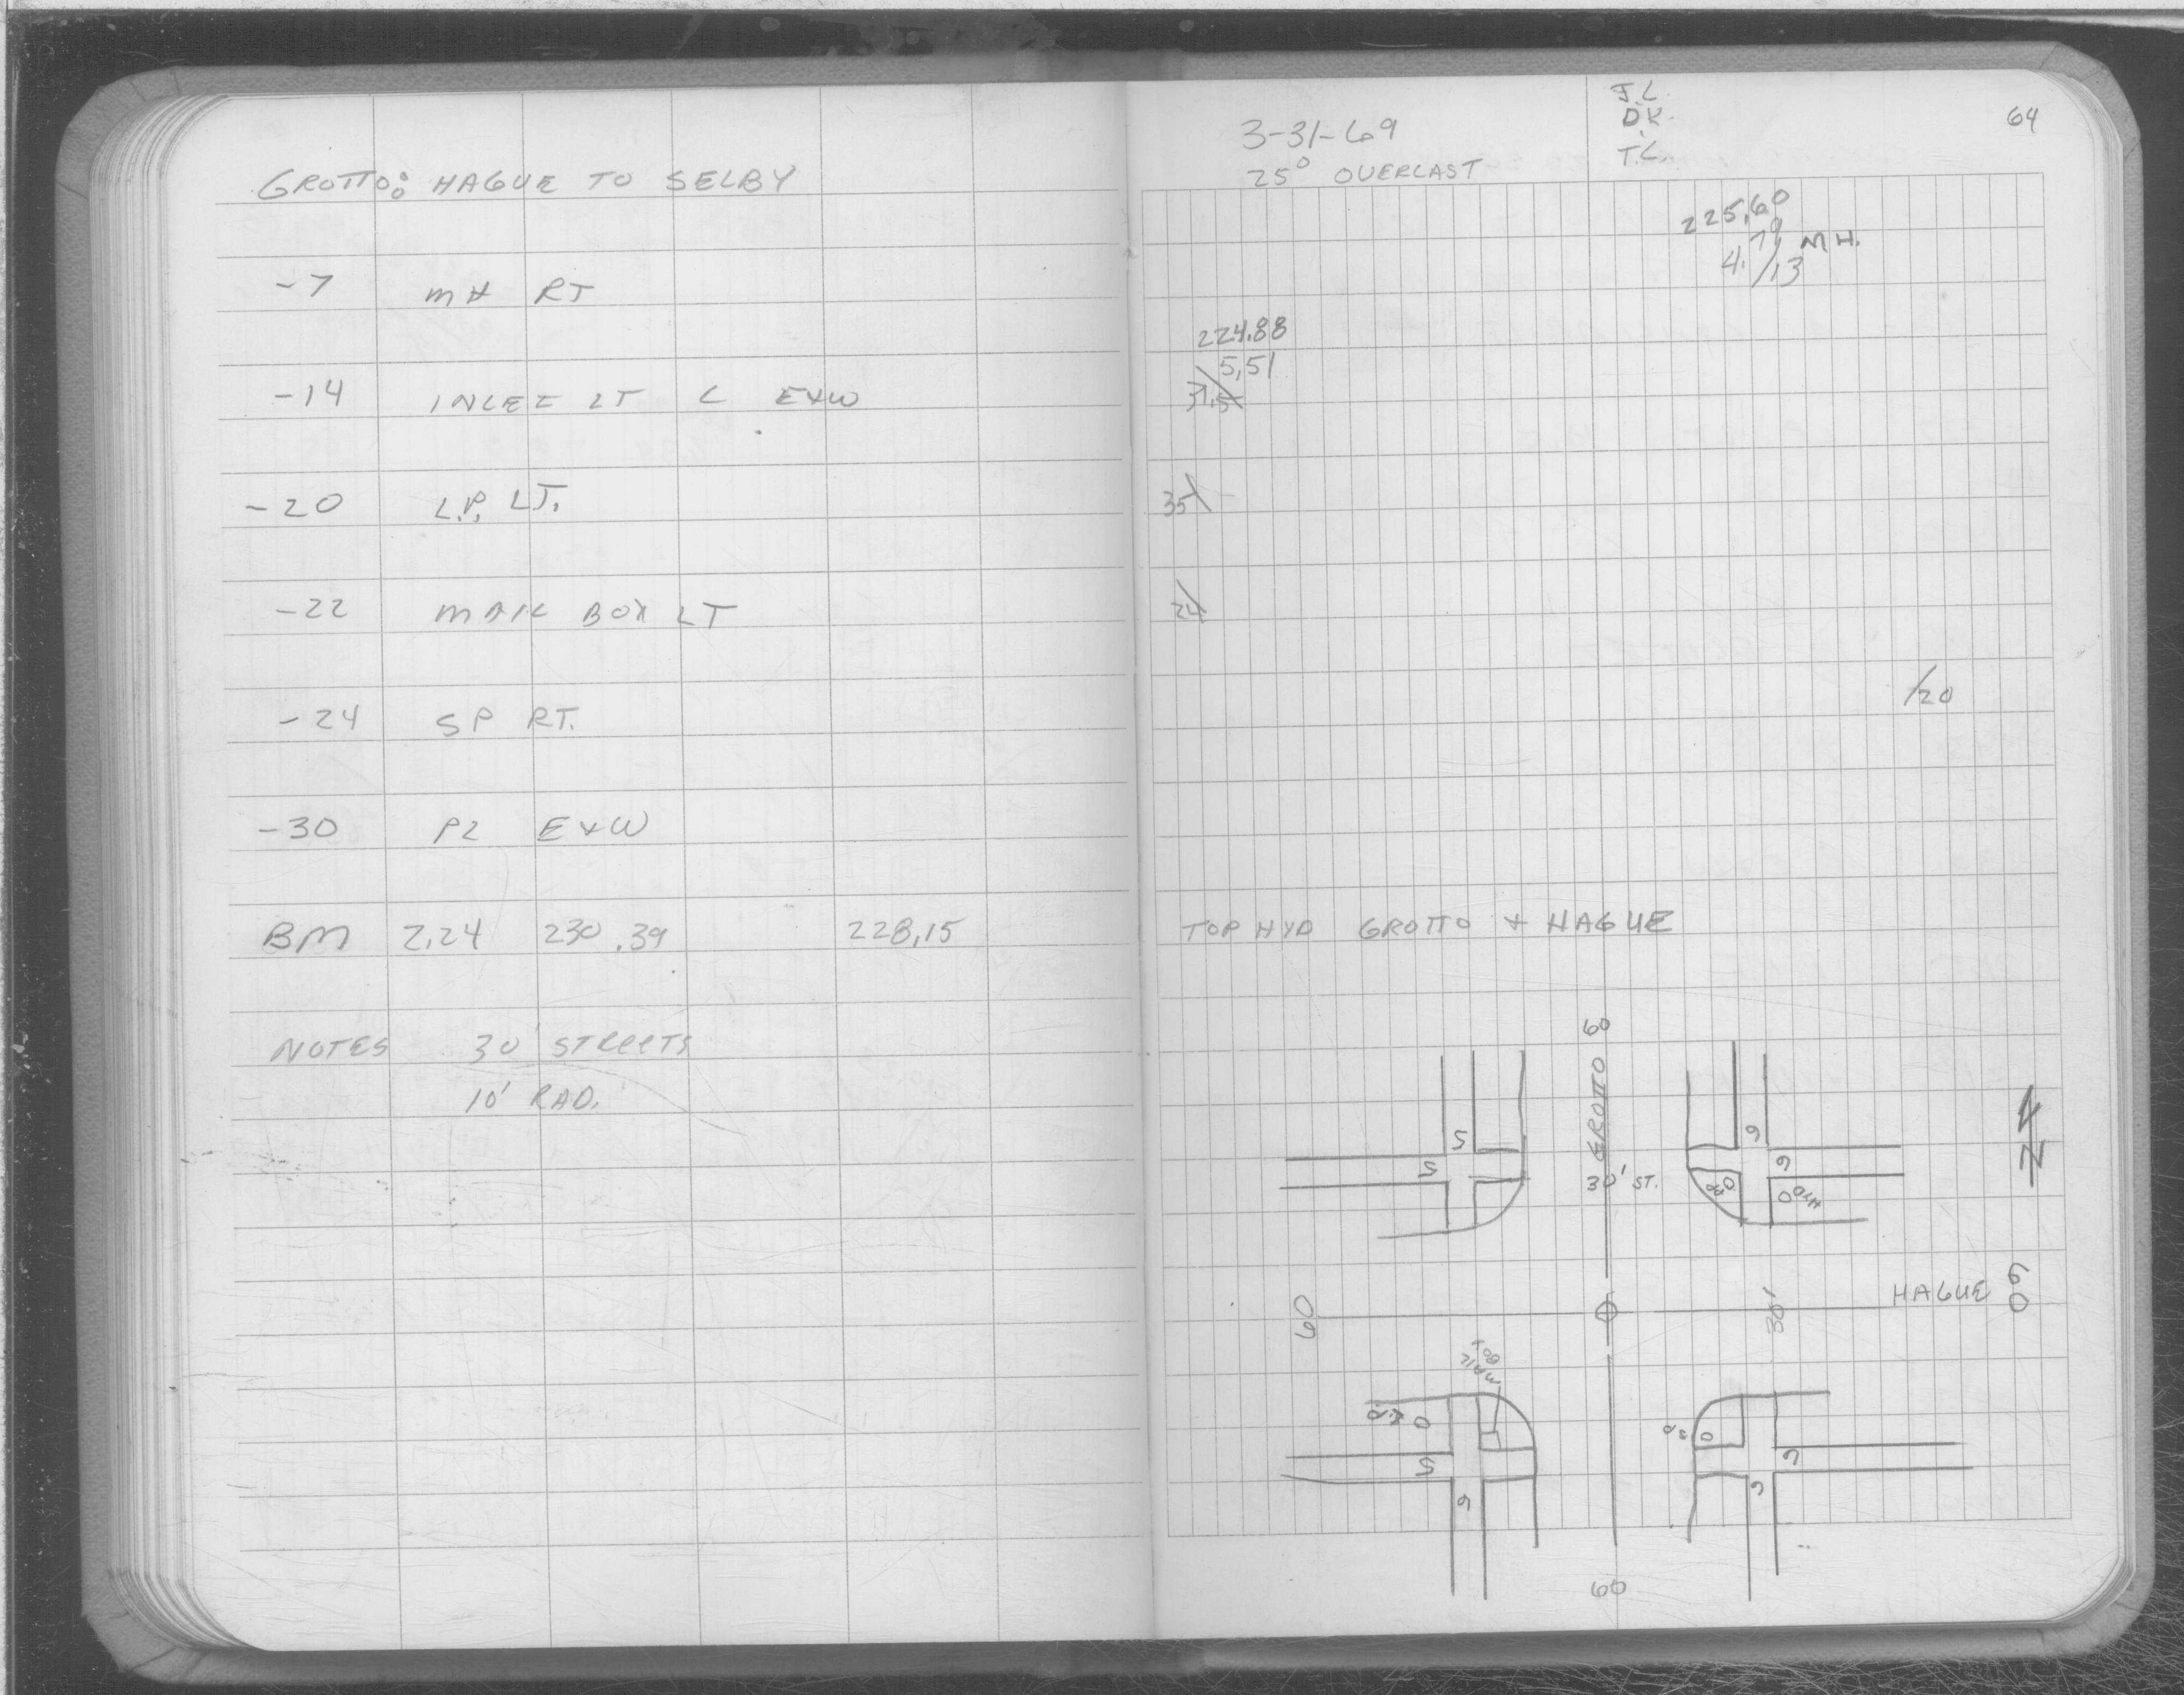 GROTTO: HAGUE TO SELBY
-7 MH RT
-14 INLET LT C E+W
-20 L.P. LT.
-22 MAIL BOX LT
-24 SP RT.
-30 PL E+W
BM 2.24 230.39 228.15
NOTES 30' STREETS
10' RAD.
3-31-69
25° OVERCAST
J.L.
D.K.
T.L.
64
225.60
4.79 MH.
/13
224.88
5.51
35\
24\
/20
TOP HYD GROTTO + HAGUE
60
GROTTO
30' ST.
5
5
6
6
HYD
N
60
30'
HAGUE
60
MAIL BOX
L.P.
5
6
SP
6
6
60